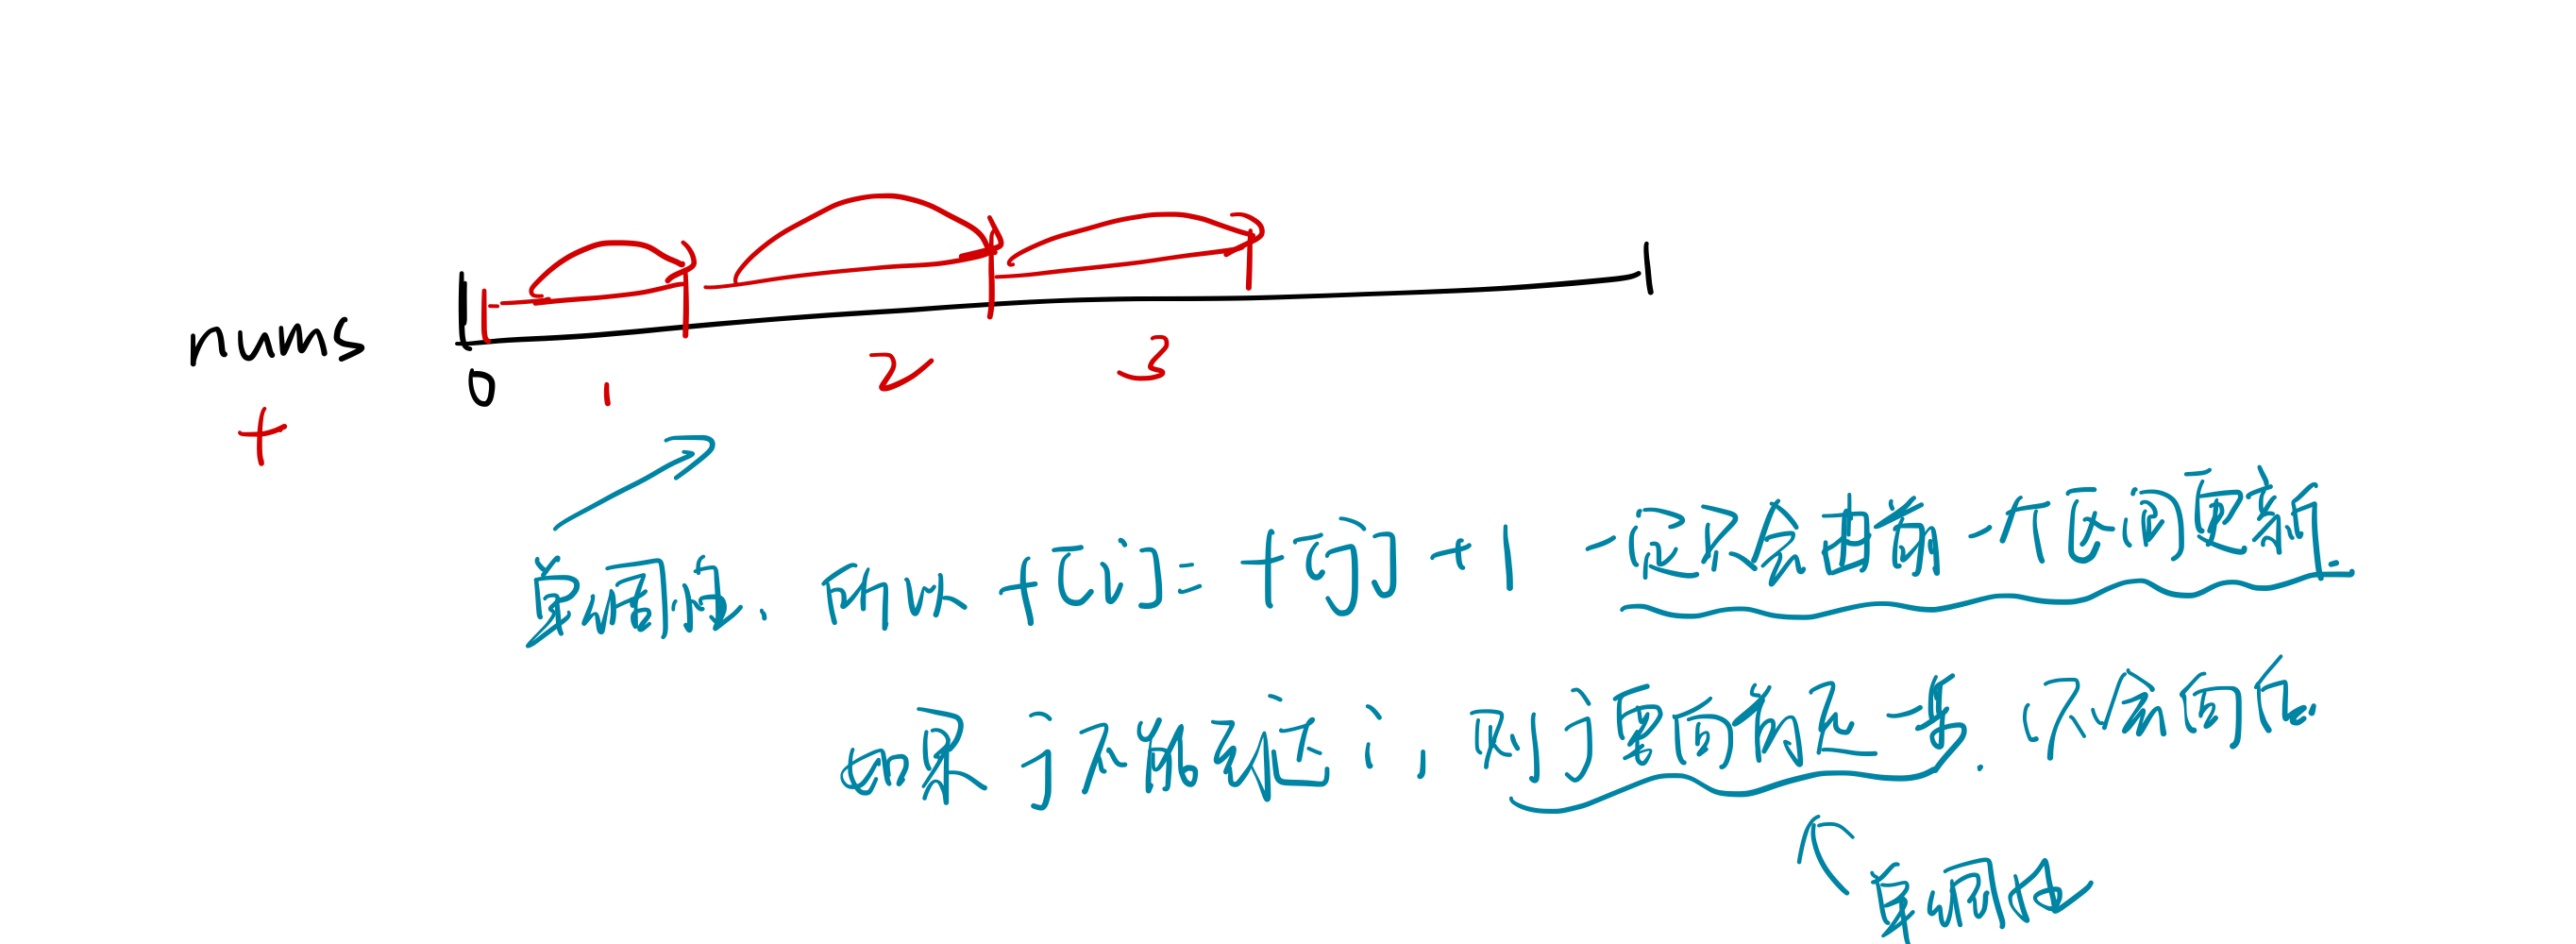 nums
0 1 2 3
+
单调性、所以 f[i] = f[j] + 1 一定只会由前一个区间更新.
如果 j 不能到达 i, 则 j 要向前走一步. 不会向后.
单调性